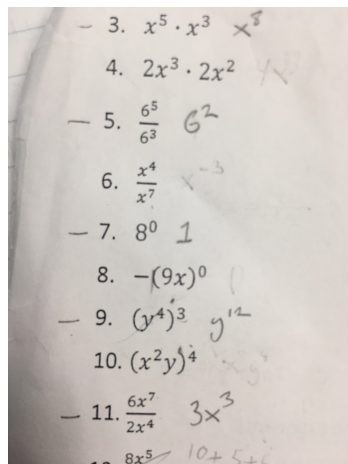 — 3. x⁵ · x³ x⁸
4. 2x³ · 2x²
— 5. 6⁵/6³ 6²
6. x⁴/x⁷ x⁻³
— 7. 8⁰ 1
8. −(9x)⁰
— 9. (y⁴)³ y¹²
10. (x²y)⁴
— 11. 6x⁷/2x⁴ 3x³
8x⁵ 10 + 5 +